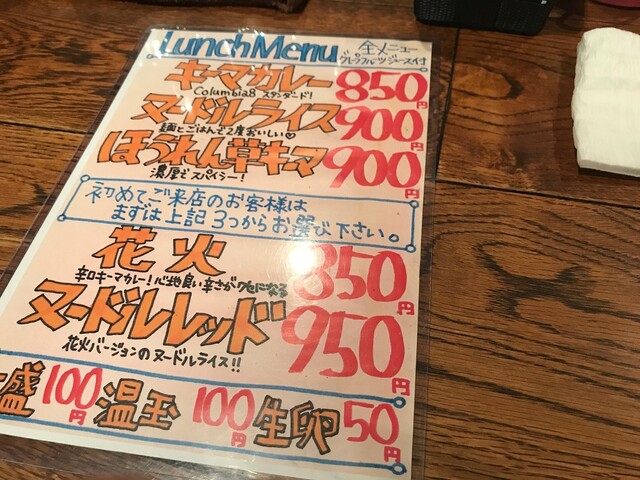 Lunch Menu
全メニュー
グレープフルーツジュース付
キーマカレー 850円
Columbia8 スタンダード!
ヌードルライス 900円
麺とごはんで2度おいしい♡
ほうれん草キーマ 900円
濃厚でスパイシー!
初めてご来店のお客様は
まずは上記3つからお選び下さい。
花火 850円
辛口キーマカレー!心地良い辛さがクセになる
ヌードルレッド 950円
花火バージョンのヌードルライス!!
盛 100円 温玉 100円 生卵 50円